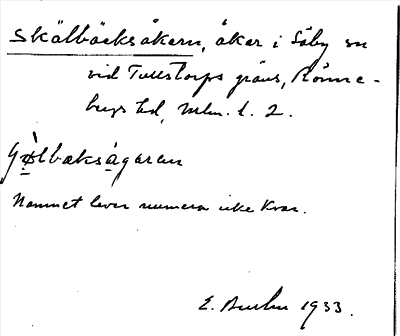 Skälbäcksåkern, åker i Säby sn
vid Tullstorps gräns, Rönne-
bergs hd, Mlm. l. 2.
Namnet lever numera icke kvar.
E. 1933.